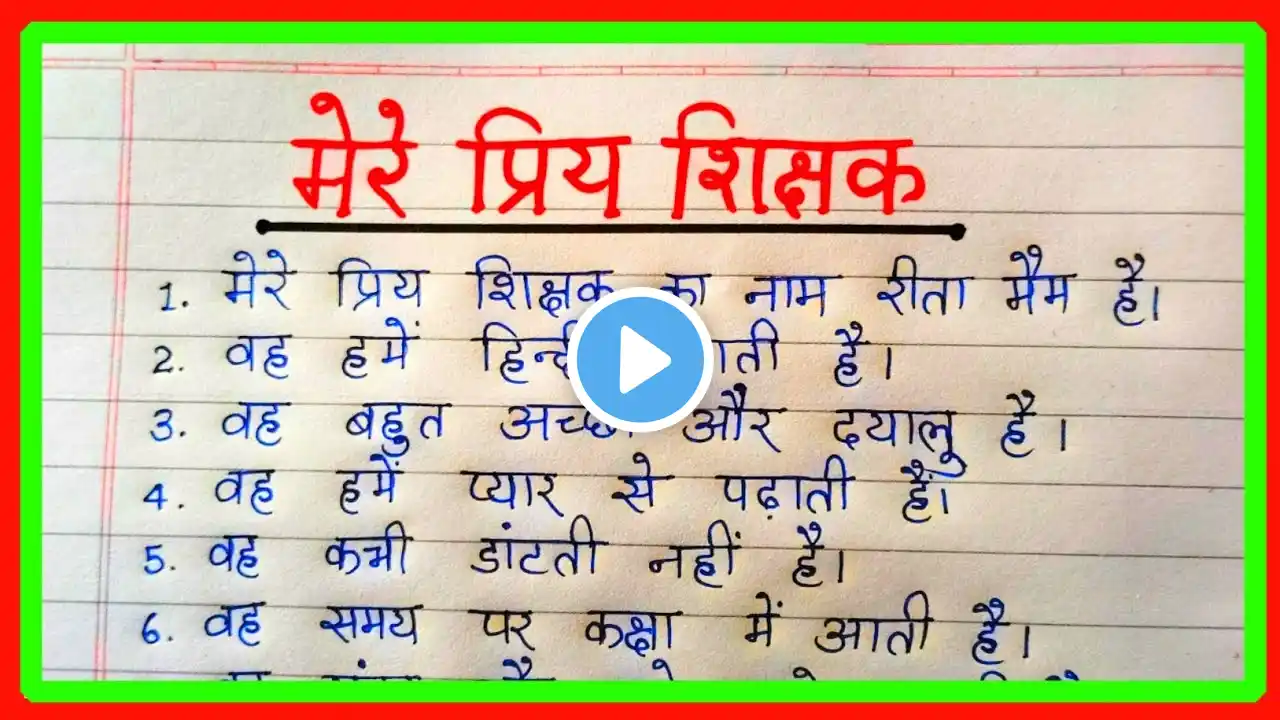 मेरे प्रिय शिक्षक
1. मेरे प्रिय शिक्षक का नाम रीता मैम है।
2. वह हमें है।
3. वह बहुत और दयालु है।
4. वह हमें प्यार से पढ़ाती हैं।
5. वह कभी डांटती नहीं है।
6. वह समय पर कक्षा में आती है।